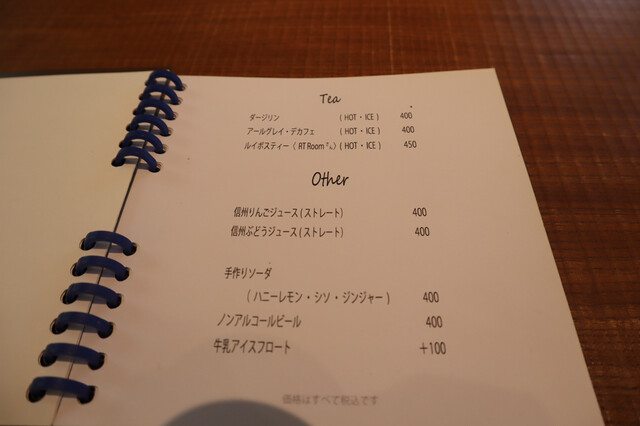 Tea
ダージリン (HOT・ICE) 400
アールグレイ・デカフェ (HOT・ICE) 400
ルイボスティー ( RT Room ) (HOT・ICE) 450
Other
信州りんごジュース(ストレート) 400
信州ぶどうジュース(ストレート) 400
手作りソーダ
(ハニーレモン・シソ・ジンジャー) 400
ノンアルコールビール 400
牛乳アイスフロート +100
価格はすべて税込です